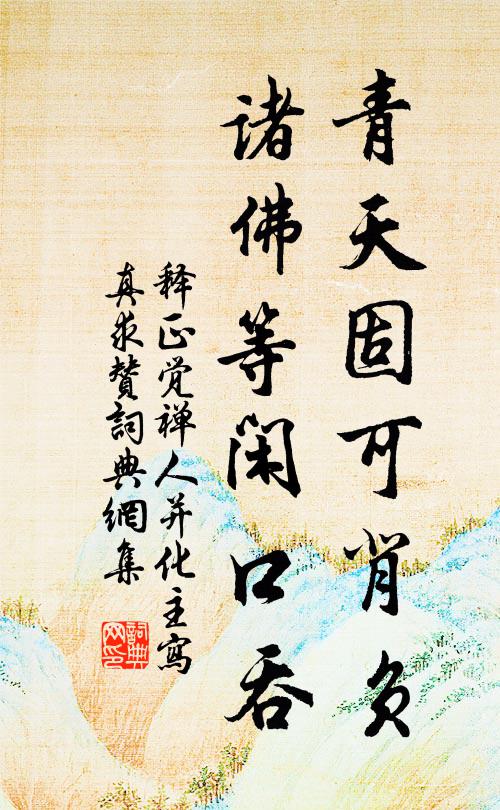 青天固可背负
诸佛等闲口吞
释正觉禅人并化主写
真求赞詞典網集
詞典网印